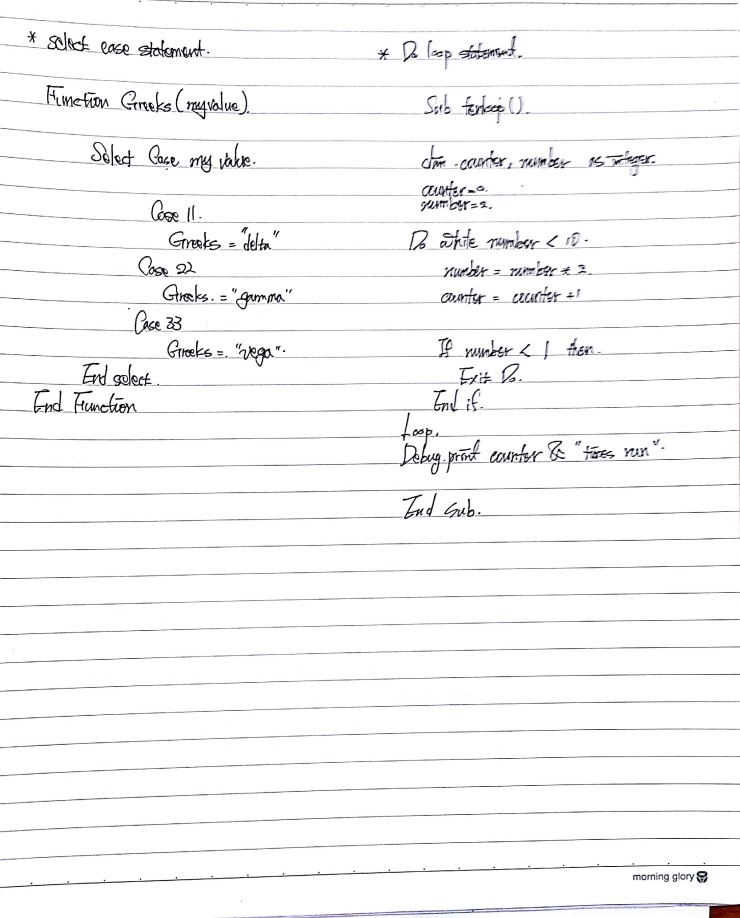 * select case statement.
Function Greeks (myvalue).
Select Case my value.
Case 11.
Greeks = "delta"
Case 22
Greeks. = "gamma"
Case 33
Greeks =. "vega".
End select.
End Function
* Do loop statement.
Sub forloop().
dim counter, number as integer.
counter=0.
number=2.
Do while number < 10.
number = number * 2.
counter = counter +1
If number < 1 then.
Exit Do.
End if.
Loop.
Debug.print counter & "times run".
End sub.
morning glory